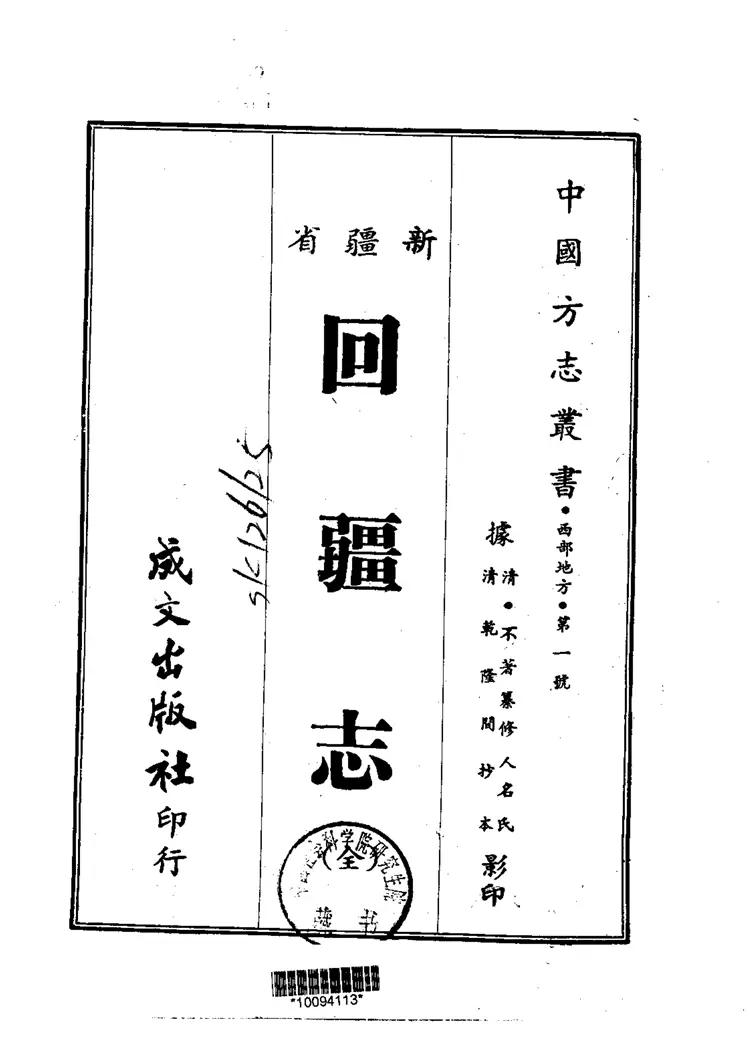 中國方志叢書•西部地方•第一號
據
清•不著纂修人名氏
清乾隆間抄本
影印
新疆省
回疆志
(全)
科学院研究生院
成文出版社印行
*10094113*